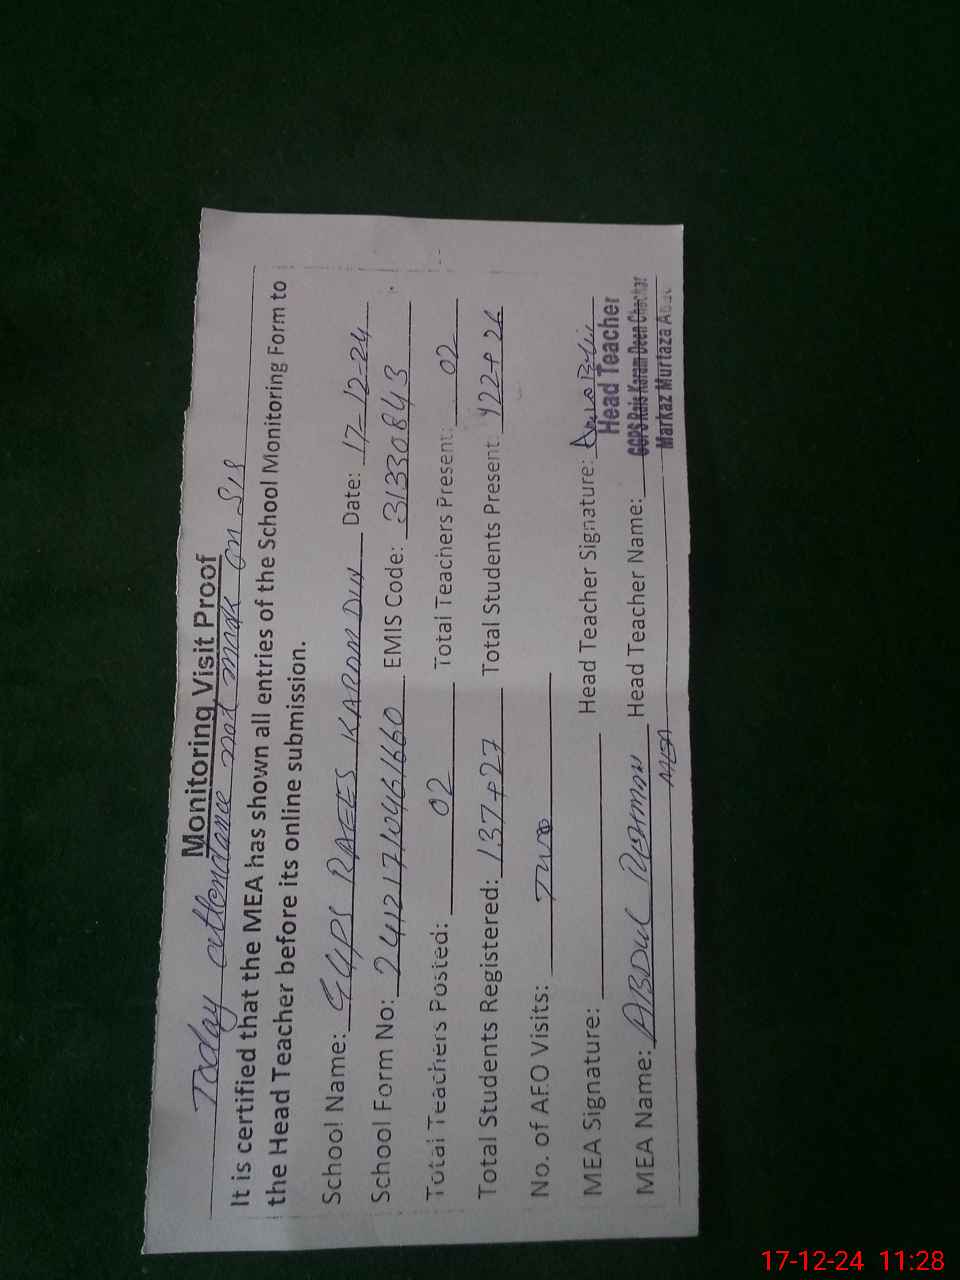 Monitoring Visit Proof
Today attendance not mark on SIS
It is certified that the MEA has shown all entries of the School Monitoring Form to
the Head Teacher before its online submission.
School Name: GGPS RAEES KARAM DIN Date: 17-12-24
School Form No: EMIS Code: 31330843
Total Teachers Posted: 02 Total Teachers Present: 02
Total Students Registered: 137+27 Total Students Present: 122+26
No. of AFO Visits: Two
MEA Signature: Head Teacher Signature:
Head Teacher
MEA Name: ABDUL REHMAN Head Teacher Name: GGPS Rais Karam Deen Chachar
MEA
Markaz Murtaza
17-12-24 11:28